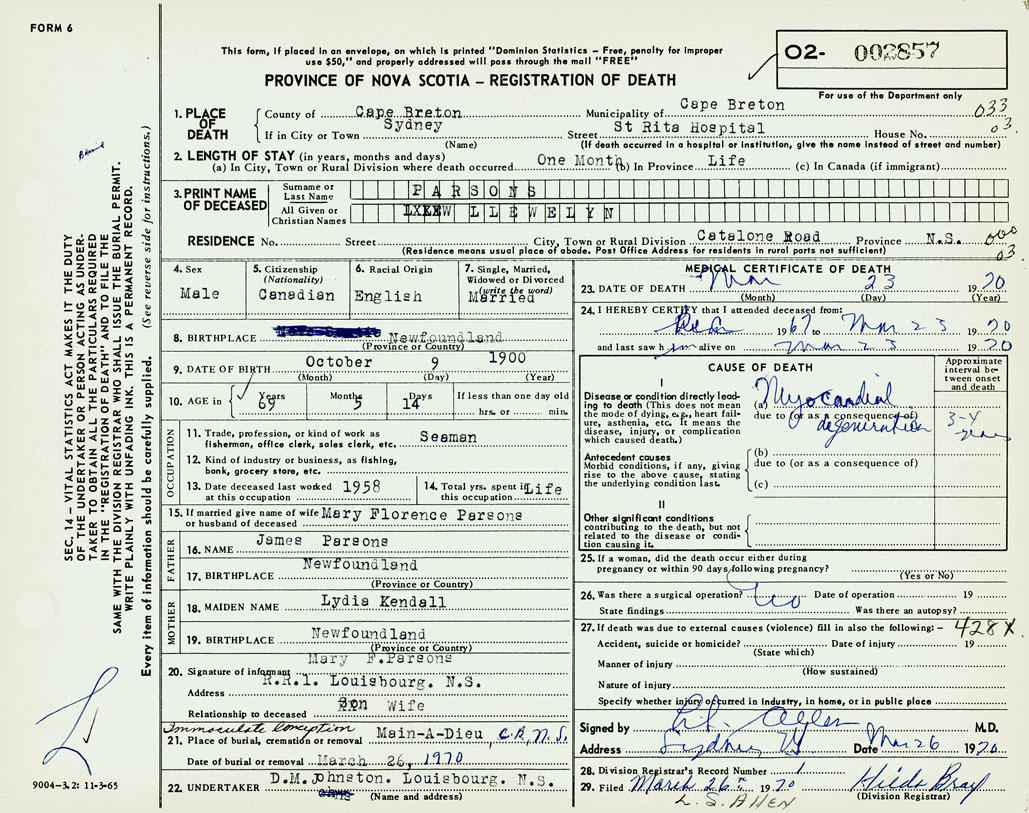 FORM 6
This form, if placed in an envelope, on which is printed "Dominion Statistics – Free, penalty for improper
use $50," and properly addressed will pass through the mail "FREE"
O2- 002857
For use of the Department only
PROVINCE OF NOVA SCOTIA – REGISTRATION OF DEATH
1. PLACE OF DEATH
County of Cape Breton Municipality of Cape Breton 033
If in City or Town Sydney Street St Rita Hospital House No. 03.
(Name) (If death occurred in a hospital or institution, give the name instead of street and number)
2. LENGTH OF STAY (in years, months and days)
(a) In City, Town or Rural Division where death occurred One Month (b) In Province Life (c) In Canada (if immigrant)
3. PRINT NAME OF DECEASED
Surname or Last Name PARSONS
All Given or Christian Names LLEWELYN
RESIDENCE No. Street City, Town or Rural Division Catalone Road Province N.S. 000
(Residence means usual place of abode. Post Office Address for residents in rural parts not sufficient) 03.
4. Sex
Male
5. Citizenship
(Nationality)
Canadian
6. Racial Origin
English
7. Single, Married,
Widowed or Divorced
(write the word)
Married
8. BIRTHPLACE Newfoundland
(Province or Country)
9. DATE OF BIRTH October 9 1900
(Month) (Day) (Year)
10. AGE in Years 69 Months 5 Days 14 If less than one day old
hrs. or min.
OCCUPATION
11. Trade, profession, or kind of work as
fisherman, office clerk, sales clerk, etc. Seaman
12. Kind of industry or business, as fishing,
bank, grocery store, etc.
13. Date deceased last worked
at this occupation 1958
14. Total yrs. spent in
this occupation Life
15. If married give name of wife
or husband of deceased Mary Florence Parsons
FATHER
16. NAME James Parsons
17. BIRTHPLACE Newfoundland
(Province or Country)
MOTHER
18. MAIDEN NAME Lydia Kendall
19. BIRTHPLACE Newfoundland
(Province or Country)
20. Signature of informant Mary F.Parsons
Address R.R.1. Louisbourg. N.S.
Relationship to deceased Wife
Immaculate Conception
21. Place of burial, cremation or removal Main-A-Dieu, C.B., N.S.
Date of burial or removal March 26, 1970
22. UNDERTAKER D.M.Johnston. Louisbourg. N.S.
(Name and address)
MEDICAL CERTIFICATE OF DEATH
23. DATE OF DEATH Mar 23 1970
(Month) (Day) (Year)
24. I HEREBY CERTIFY that I attended deceased from:
1967 to Mar 23 1970
and last saw him alive on Mar 23 1970
CAUSE OF DEATH
Approximate
interval be-
tween onset
and death
I
Disease or condition directly lead-
ing to death (This does not mean
the mode of dying, e.g., heart fail-
ure, asthenia, etc. It means the
disease, injury, or complication
which caused death.)
(a) Myocardial
due to (or as a consequence of)
degeneration
3-4
years
Antecedent causes
Morbid conditions, if any, giving
rise to the above cause, stating
the underlying condition last.
(b)
due to (or as a consequence of)
(c)
II
Other significant conditions
contributing to the death, but not
related to the disease or condi-
tion causing it.
25. If a woman, did the death occur either during
pregnancy or within 90 days following pregnancy?
(Yes or No)
26. Was there a surgical operation? No Date of operation 19
State findings Was there an autopsy?
27. If death was due to external causes (violence) fill in also the following: – 428X
Accident, suicide or homicide? Date of injury 19
(State which)
Manner of injury
(How sustained)
Nature of injury
Specify whether injury occurred in industry, in home, or in public place
Signed by M.D.
Address Sydney Date Mar 26 1970
28. Division Registrar's Record Number 1
29. Filed March 26 1970 Hilda Bray
L. S. Allen (Division Registrar)
SEC. 14 – VITAL STATISTICS ACT MAKES IT THE DUTY
OF THE UNDERTAKER OR PERSON ACTING AS UNDER-
TAKER TO OBTAIN ALL THE PARTICULARS REQUIRED
IN THE "REGISTRATION OF DEATH" AND TO FILE THE
SAME WITH THE DIVISION REGISTRAR WHO SHALL ISSUE THE BURIAL PERMIT.
WRITE PLAINLY WITH UNFADING INK. THIS IS A PERMANENT RECORD.
Every item of information should be carefully supplied. (See reverse side for instructions.)
9004-3.2: 11-3-65